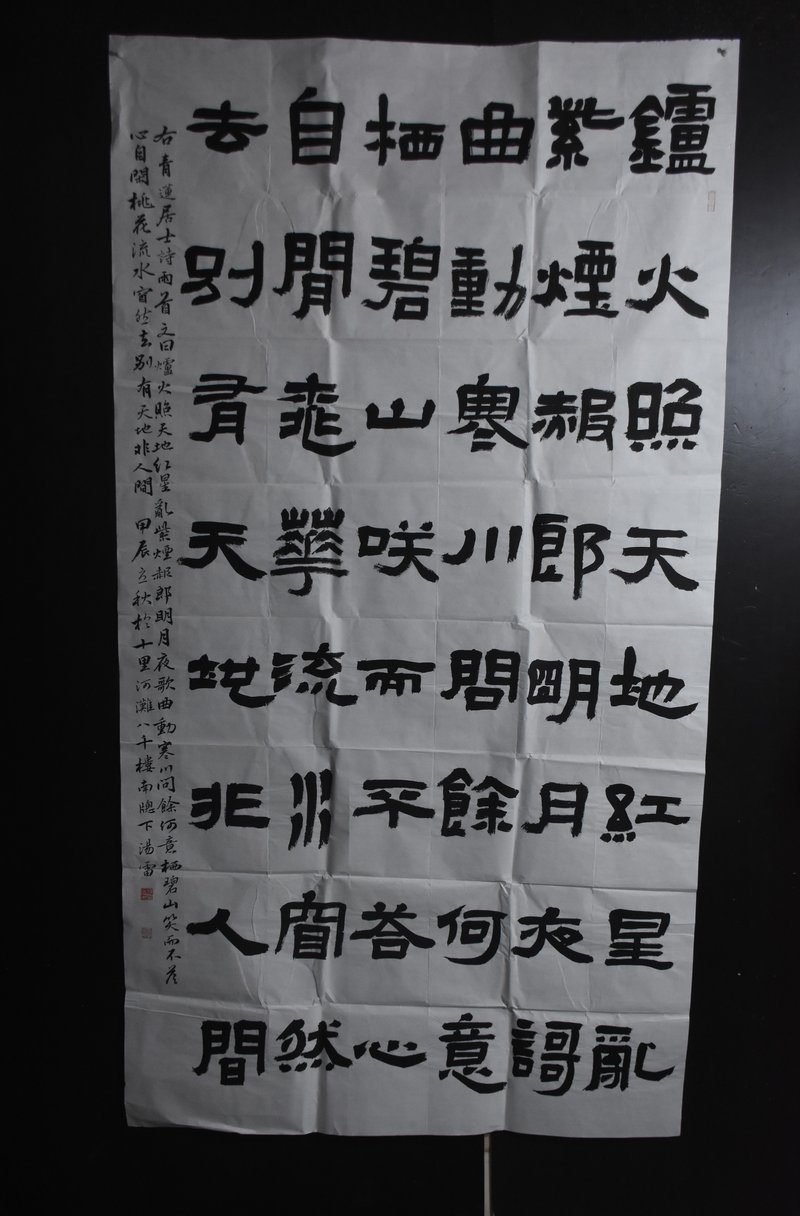 鑪火照天地紅星亂
紫煙赧郎明月夜謌
曲動寒川問餘何意
栖碧山咲而不荅心
自閒桃華流水窅然
去別有天地非人間
右青蓮居士詩兩首文曰爐火照天地紅星亂紫煙赧郎明月夜歌曲動寒川問餘何意栖碧山笑而不答
心自閑桃花流水窅然去別有天地非人間 甲辰立秋於十里河灘八千樓南牕下湯雷